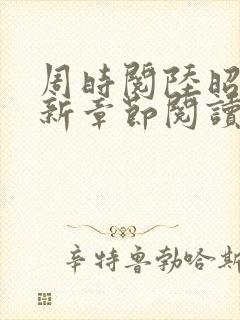 周時閱陸昭
新章節閱讀
辛特魯勃哈斯